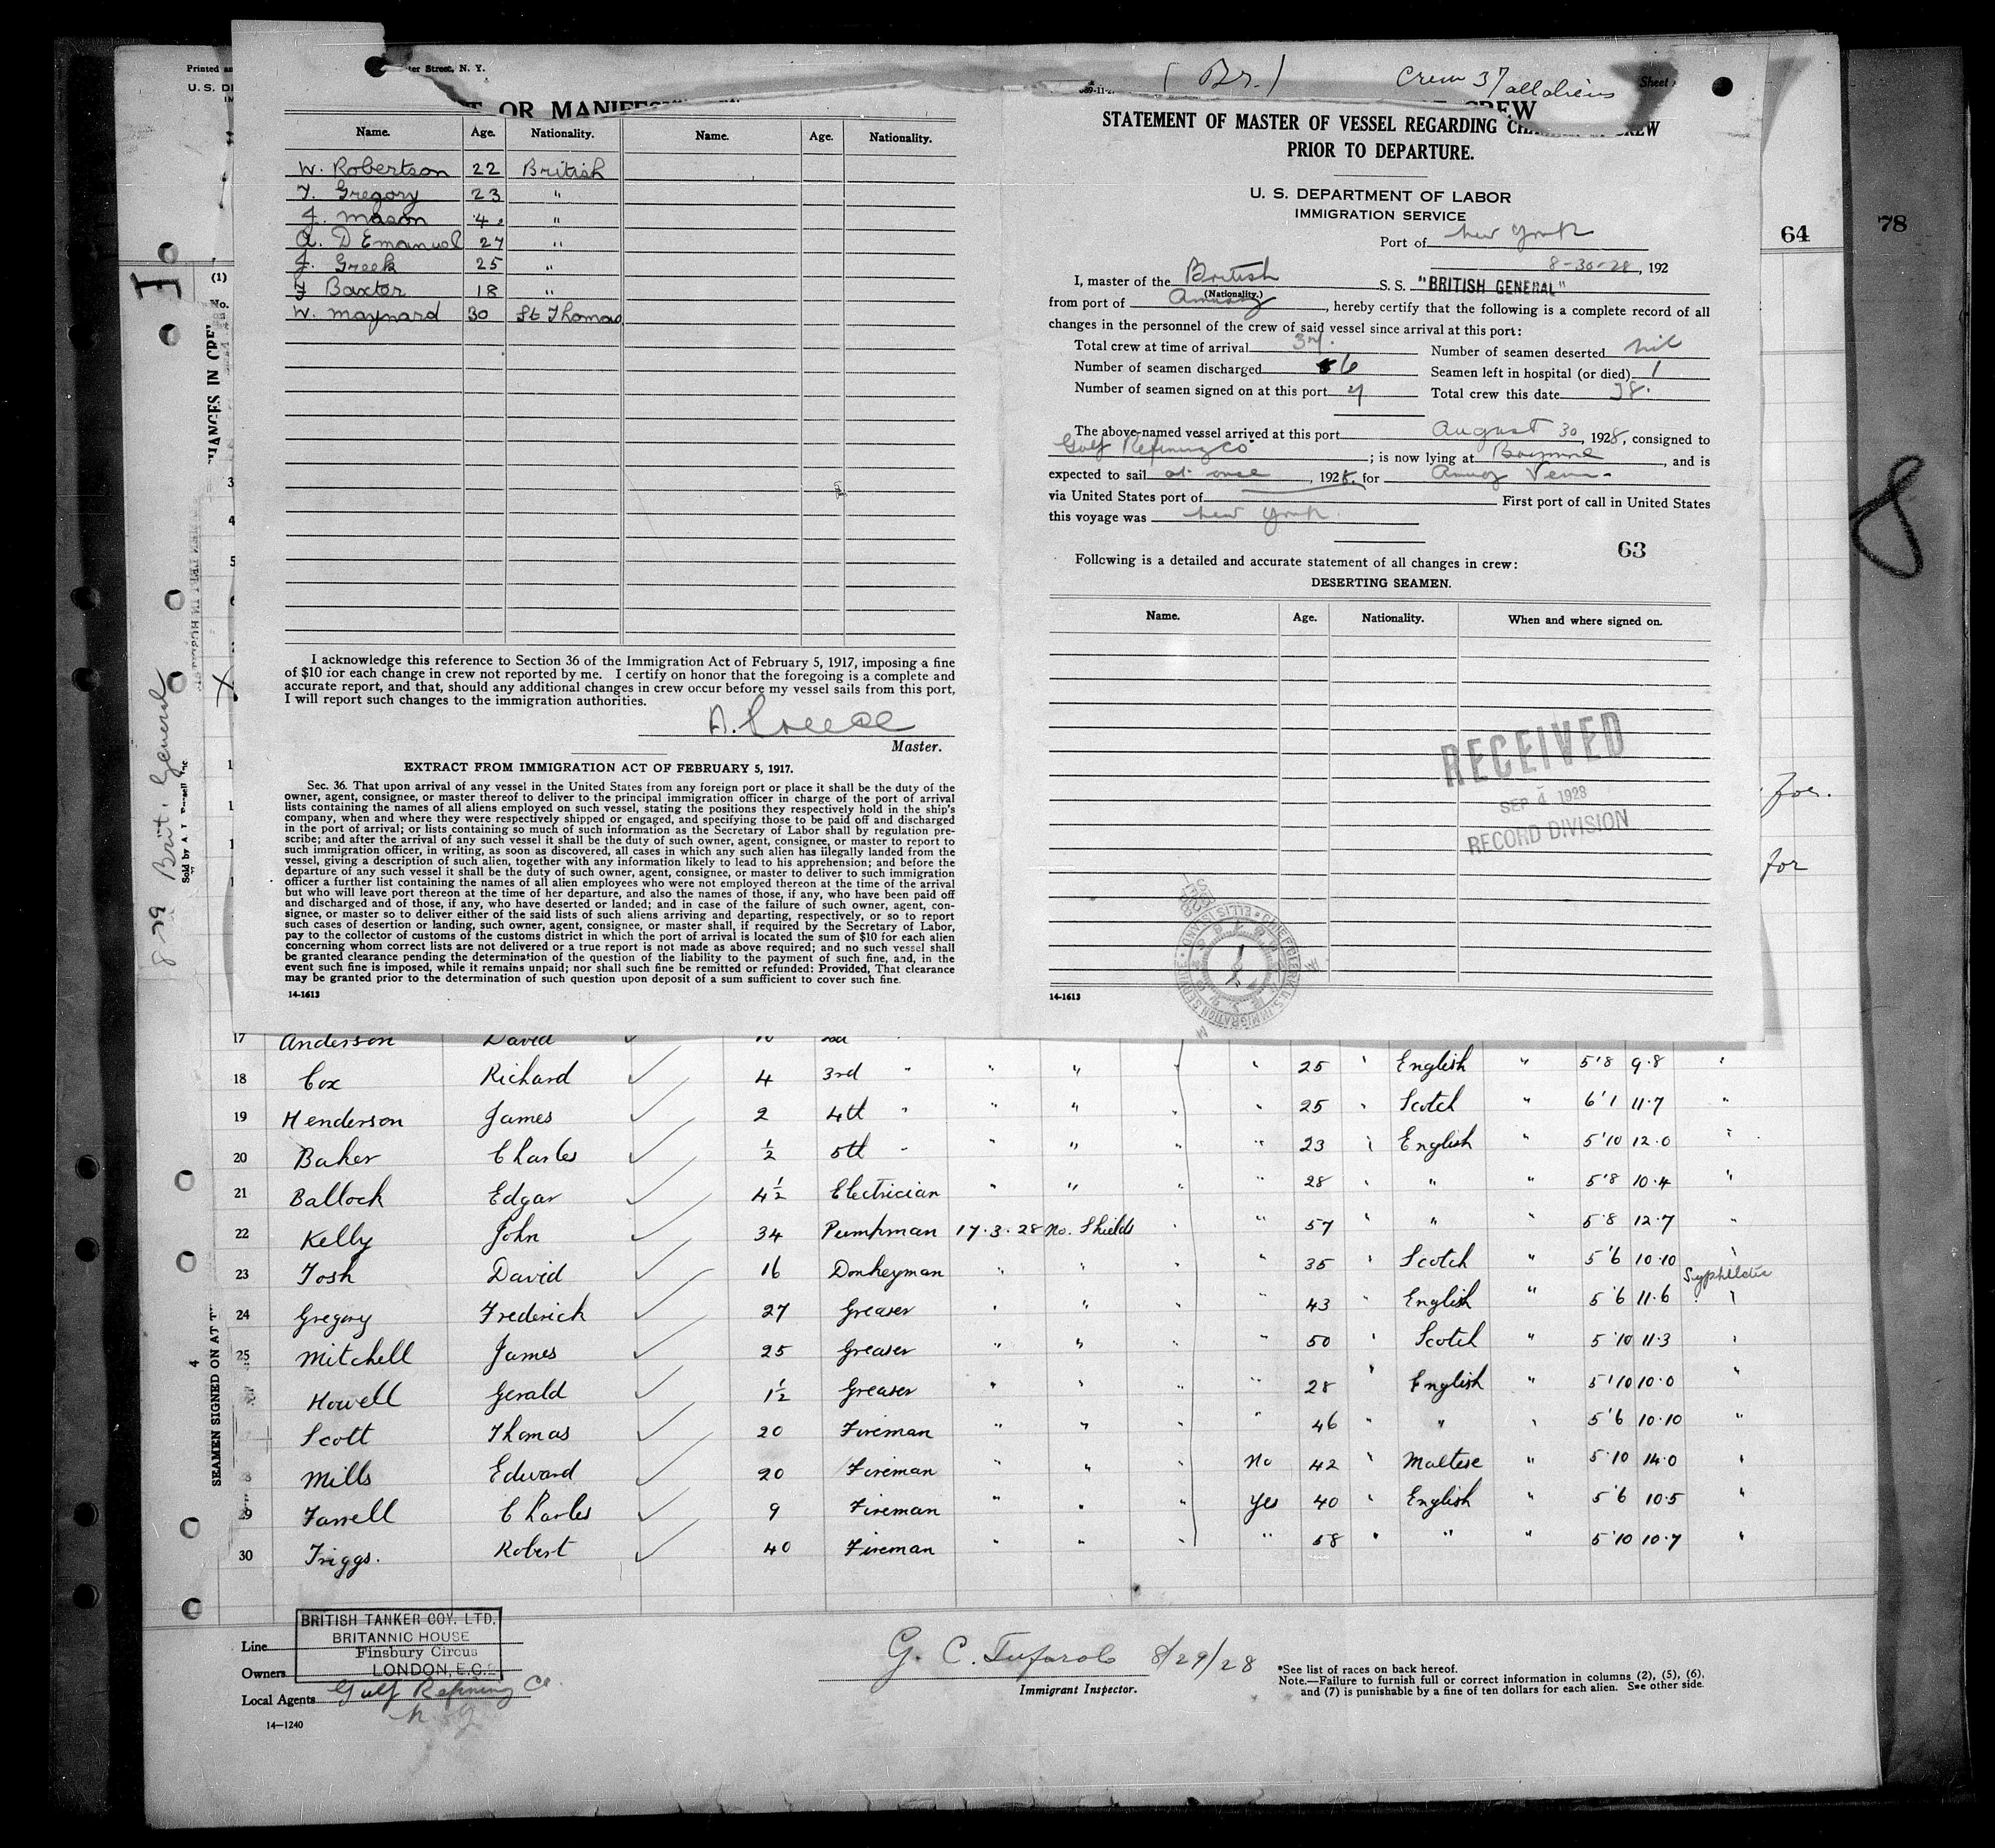 Printed
ter Street, N. Y.
U. S.
OR MANIFES
(Br.)
Crew 37 all aliens
Sheet
CREW
Name. Age. Nationality. Name. Age. Nationality.
W. Robertson 22 British
F. Gregory 23 "
J. Mason 4 "
A. D Emanuel 27 "
J. Greek 25 "
F Baxter 18 "
W. Maynard 30 St Thomas
I acknowledge this reference to Section 36 of the Immigration Act of February 5, 1917, imposing a fine
of $10 for each change in crew not reported by me. I certify on honor that the foregoing is a complete and
accurate report, and that, should any additional changes in crew occur before my vessel sails from this port,
I will report such changes to the immigration authorities.
Master.
EXTRACT FROM IMMIGRATION ACT OF FEBRUARY 5, 1917.
Sec. 36. That upon arrival of any vessel in the United States from any foreign port or place it shall be the duty of the
owner, agent, consignee, or master thereof to deliver to the principal immigration officer in charge of the port of arrival
lists containing the names of all aliens employed on such vessel, stating the positions they respectively hold in the ship's
company, when and where they were respectively shipped or engaged, and specifying those to be paid off and discharged
in the port of arrival; or lists containing so much of such information as the Secretary of Labor shall by regulation pre-
scribe; and after the arrival of any such vessel it shall be the duty of such owner, agent, consignee, or master to report to
such immigration officer, in writing, as soon as discovered, all cases in which any such alien has illegally landed from the
vessel, giving a description of such alien, together with any information likely to lead to his apprehension; and before the
departure of any such vessel it shall be the duty of such owner, agent, consignee, or master to deliver to such immigration
officer a further list containing the names of all alien employees who were not employed thereon at the time of the arrival
but who will leave port thereon at the time of her departure, and also the names of those, if any, who have been paid off
and discharged and of those, if any, who have deserted or landed; and in case of the failure of such owner, agent, con-
signee, or master so to deliver either of the said lists of such aliens arriving and departing, respectively, or so to report
such cases of desertion or landing, such owner, agent, consignee, or master shall, if required by the Secretary of Labor,
pay to the collector of customs of the customs district in which the port of arrival is located the sum of $10 for each alien
concerning whom correct lists are not delivered or a true report is not made as above required; and no such vessel shall
be granted clearance pending the determination of the question of the liability to the payment of such fine, and, in the
event such fine is imposed, while it remains unpaid; nor shall such fine be remitted or refunded: Provided, That clearance
may be granted prior to the determination of such question upon deposit of a sum sufficient to cover such fine.
14-1613
STATEMENT OF MASTER OF VESSEL REGARDING CREW
PRIOR TO DEPARTURE.
U. S. DEPARTMENT OF LABOR
IMMIGRATION SERVICE
Port of New York
8-30-28, 192
I, master of the British S. S. "BRITISH GENERAL"
(Nationality.)
from port of Amuay, hereby certify that the following is a complete record of all
changes in the personnel of the crew of said vessel since arrival at this port:
Total crew at time of arrival 37. Number of seamen deserted nil
Number of seamen discharged 6 Seamen left in hospital (or died) 1
Number of seamen signed on at this port Total crew this date 38.
The above-named vessel arrived at this port August 30, 1928, consigned to
Gulf Refining Co; is now lying at Bayonne, and is
expected to sail at once, 1928, for Amuay Ven
via United States port of First port of call in United States
this voyage was New York.
63
Following is a detailed and accurate statement of all changes in crew:
DESERTING SEAMEN.
Name. Age. Nationality. When and where signed on.
RECEIVED
SEP 4 1928
RECORD DIVISION
14-1613
64
78
8
for.
for
8-29 Brit. General
SEAMEN SIGNED ON AT
17 Anderson David
18 Cox Richard 4 3rd " " " " " 25 " English " 5'8 9.8 "
19 Henderson James 2 4th " " " " " 25 " Scotch " 6'1 11.7 "
20 Baker Charles ½ 5th " " " " " 23 " English " 5'10 12.0 "
21 Ballock Edgar 4½ Electrician " " " " 28 " " " 5'8 10.4 "
22 Kelly John 34 Pumpman 17.3.28 No. Shields " " 57 " " " 5'8 12.7 "
23 Tosh David 16 Donkeyman " " " " 35 " Scotch " 5'6 10.10 "
Syphiletic
24 Gregory Frederick 27 Greaser " " " " 43 English " 5'6 11.6 "
25 Mitchell James 25 Greaser " " " " 50 " Scotch " 5'10 11.3 "
Howell Gerald 1½ Greaser " " " " 28 " English " 5'10 10.0 "
Scott Thomas 20 Fireman " " " " 46 " " " 5'6 10.10 "
8 Mills Edward 20 Fireman " " " No 42 " Maltese " 5'10 14.0 "
29 Farrell Charles 9 Fireman " " " Yes 40 " English " 5'6 10.5 "
30 Triggs. Robert 40 Fireman " " " " 58 " " " 5'10 10.7 "
BRITISH TANKER COY. LTD.
BRITANNIC HOUSE
Finsbury Circus
LONDON, E.C.2
Line
Owners
Local Agents Gulf Refining Co.
N Y
14—1240
8/29/28
Immigrant Inspector.
*See list of races on back hereof.
Note.—Failure to furnish full or correct information in columns (2), (5), (6),
and (7) is punishable by a fine of ten dollars for each alien. See other side.